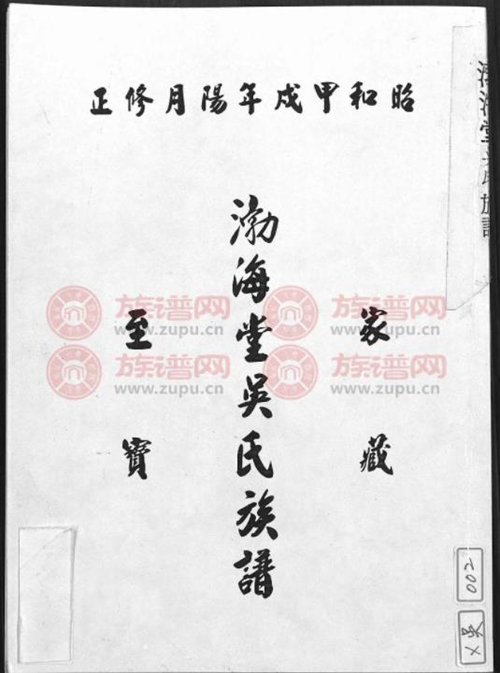 昭和甲戌年陽月修正
家藏
渤海堂吳氏族譜
至寶
渤海堂吳氏族譜
族谱网
www.zupu.cn
族谱网
www.zupu.cn
族谱网
www.zupu.cn
族谱网
www.zupu.cn
002
X吳